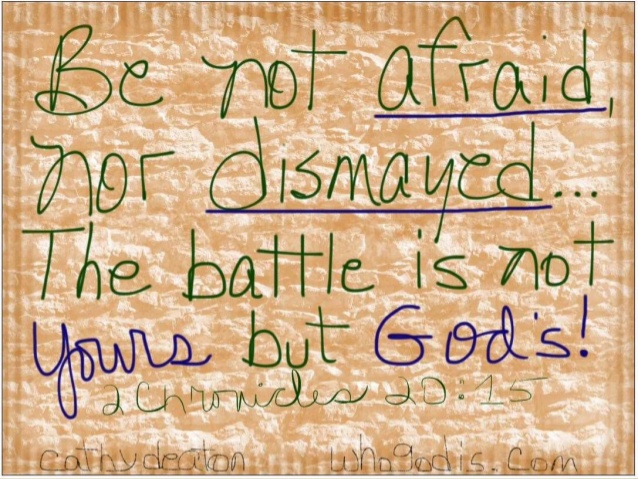 Be not afraid,
nor dismayed...
The battle is not
yours but God's!
2 Chronicles 20:15
cathydeaton whogodis.com